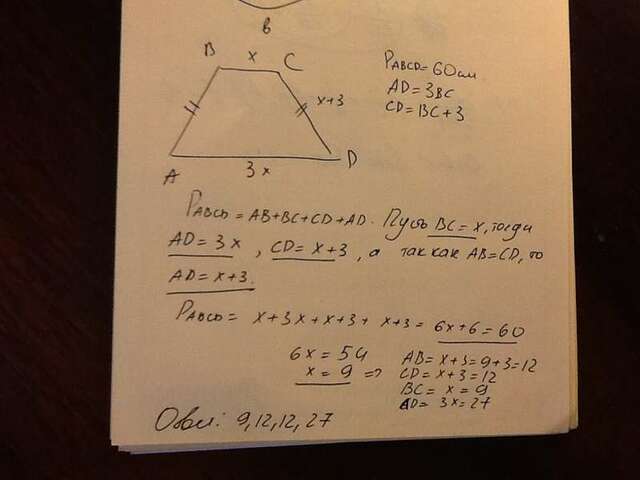 в
B x C
x+3
A 3x D
PABCD=60см
AD=3BC
CD=BC+3
PABCD=AB+BC+CD+AD. Пусть BC=x, тогда
AD=3x, CD=x+3, а так как AB=CD, то
AD=x+3.
PABCD= x+3x+x+3+ x+3= 6x+6=60
6x=54
x=9 =>
AB=x+3=9+3=12
CD=x+3=12
BC=x=9
AD=3x=27
Ответ: 9,12,12,27